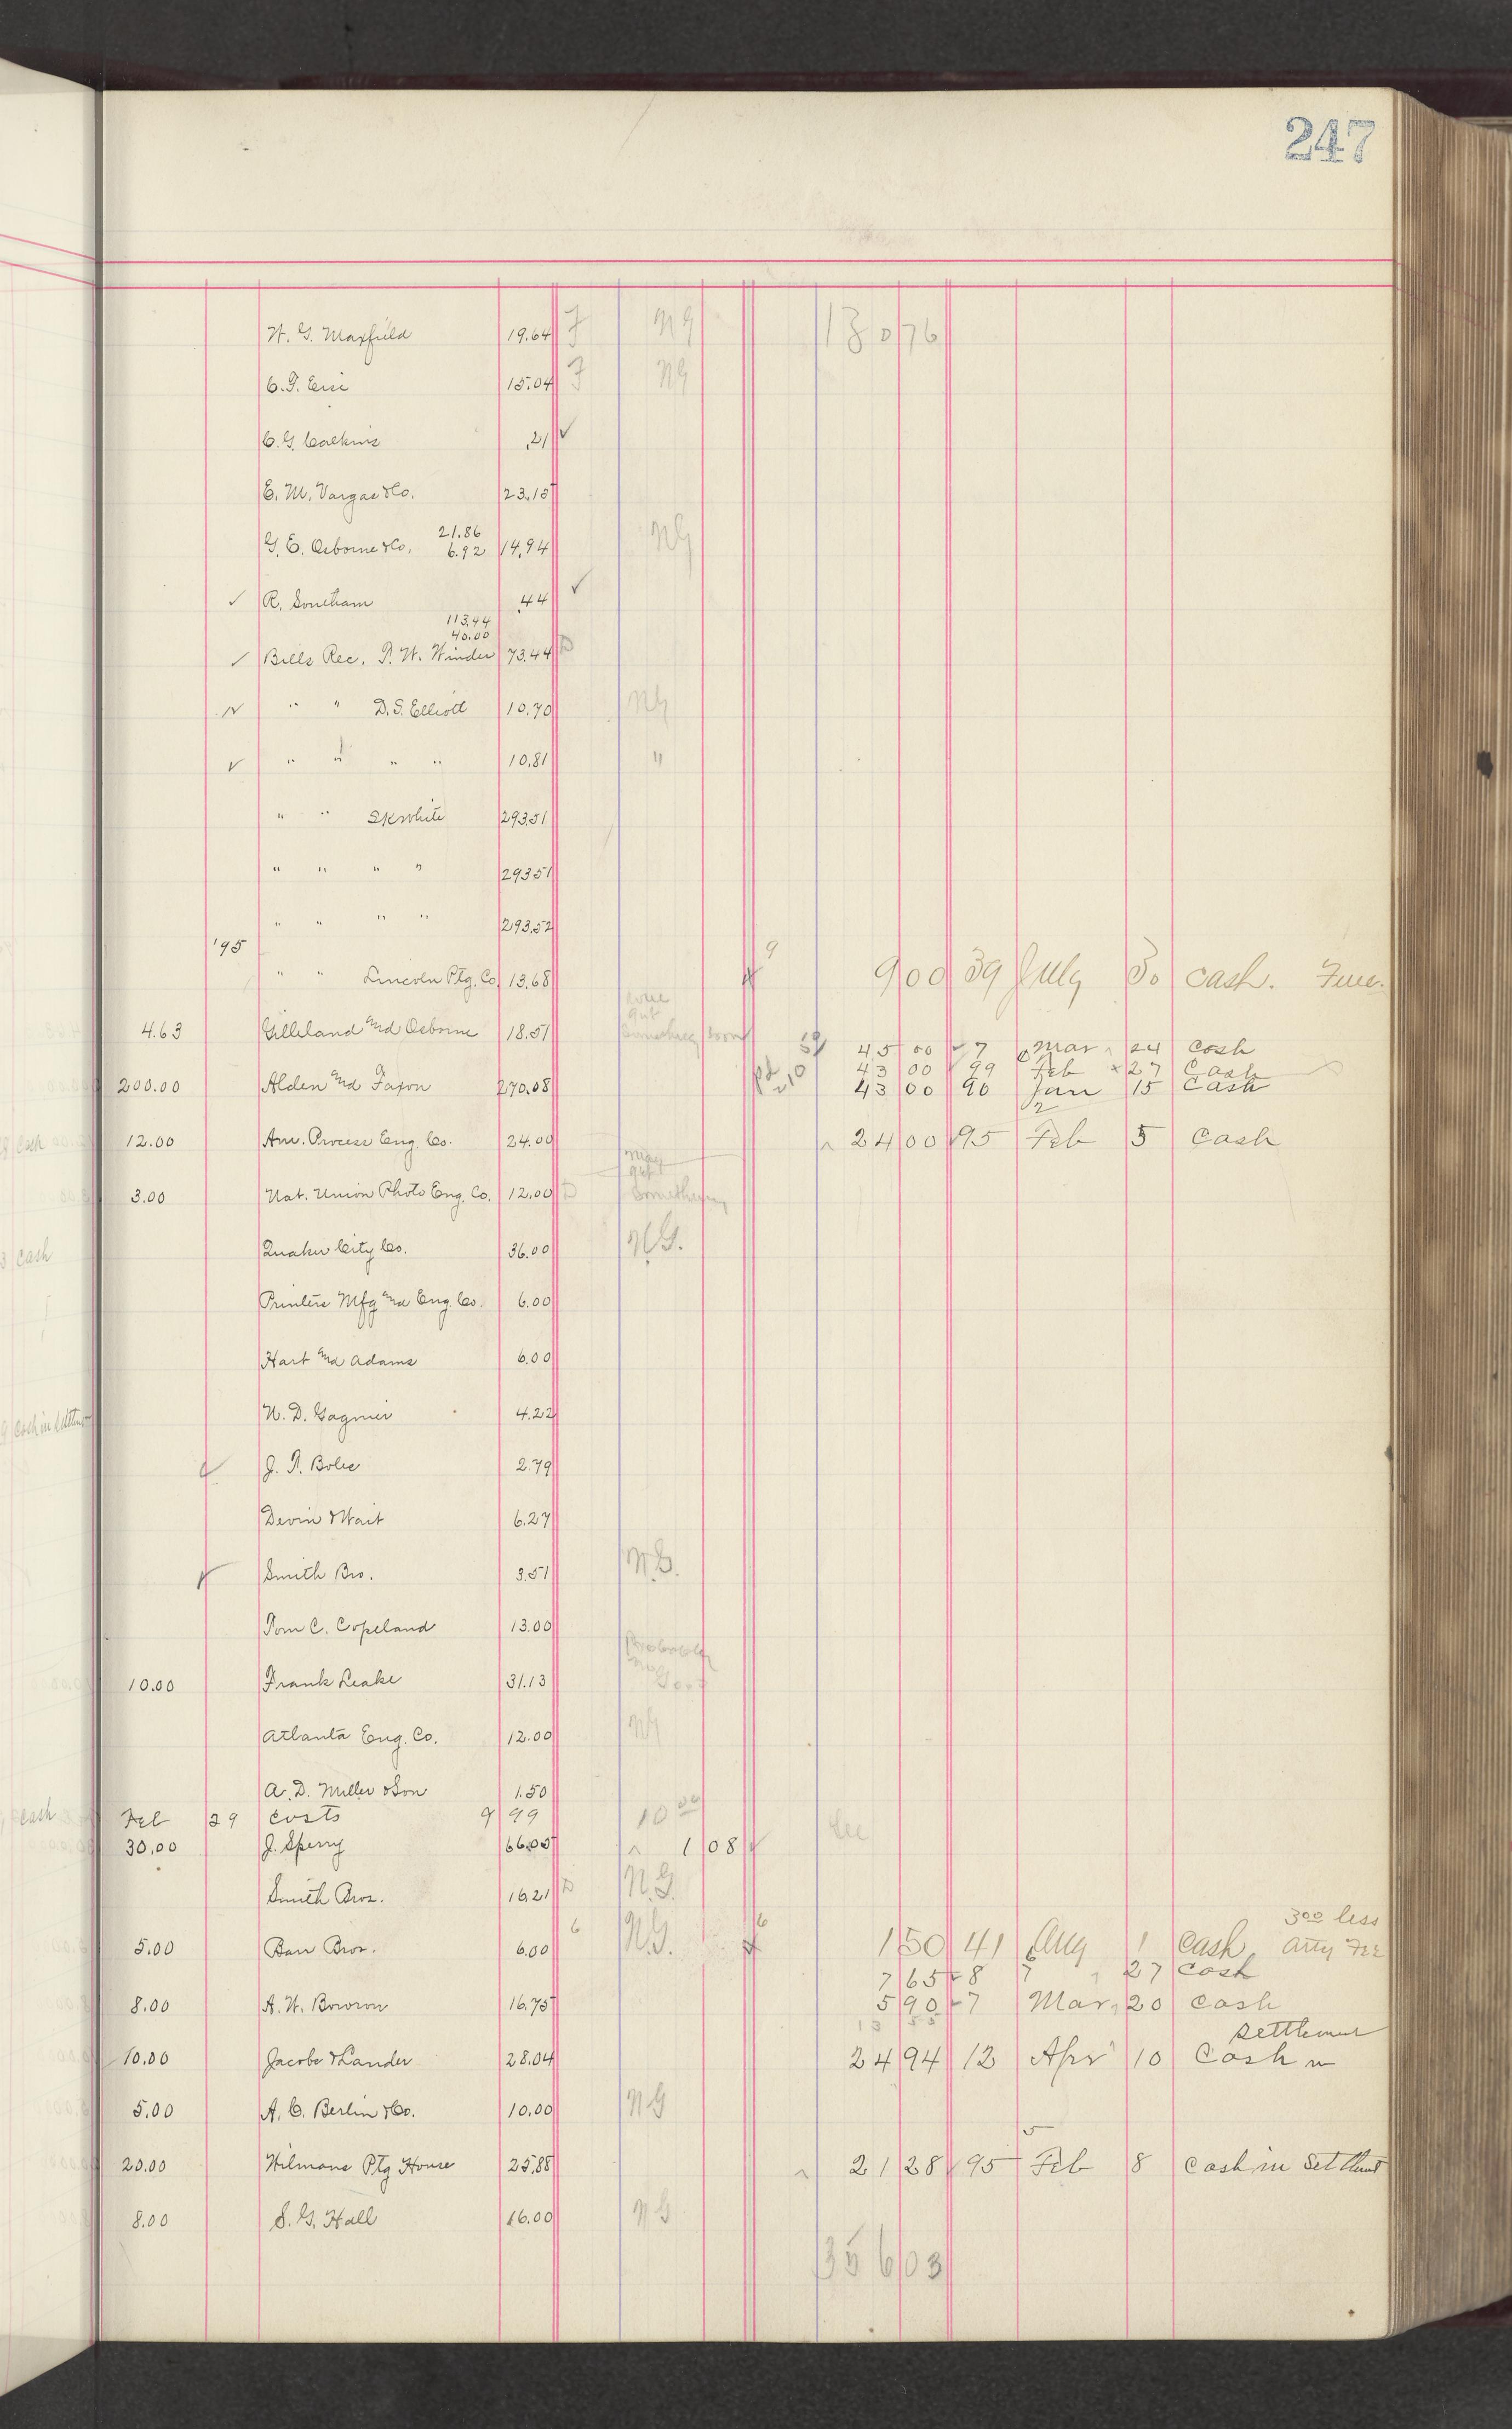 247
W. G. Maxfield 19.64 F NG 130 76
15.04 F NG
C. G. Calkins .21 ✓
E. M. Vargas & Co. 23.15
21.86
G. E. Osborne & Co. 6.92 14.94 NG
✓ R. .44 ✓
113.44
40.00
✓ Bills Rec. P. W. Winder 73.44 D
✓ " " D. S. Elliott 10.70 NG
✓ " " " " 10.81 "
" " S K White 293.51
" " " " 293.51
" " " " 293.52
'95 9
" " Lincoln Ptg. Co. 13.68 9 00 39 July 30 Cash.
4.63 Gilleland and Osborne 18.51 45 00 7 Mar 24 Cash
43 00 99 Feb 27 Cash
200.00 Alden and Faxon 270.08 pd 210 43 00 96 Jan 15 Cash
12.00 Am. Process Eng. Co. 24.00 24 00 95 Feb 5 Cash
may
get
3.00 Nat. Union Photo Eng. Co. 12.00 D something
Quaker City Co. 36.00 N.G.
Printers Mfg and Eng. Co. 6.00
Hart and Adams 6.00
N. D. Gagnier 4.22
2.79
Devin & Wait 6.27
Smith Bro. 3.51 N.G.
Tom C. Copeland 13.00
Probably
no
10.00 Frank Leake 31.13 Good
Atlanta Eng. Co. 12.00 NG
A. D. Miller & Son 1.50
Feb 29 Costs 9 99 10 00
30.00 J. Sperry 66.00 1 08
Smith Bros. 16.21 D N.G.
6 6 3 00 less
5.00 Barr Bros. 6.00 N.G. 1 50 41 Aug 1 Cash Atty Fee
7 65 8 27 Cash
8.00 A. W. Bowron 16.75 5 90 7 Mar 20 Cash
13 55
settlement
10.00 Jacobs & Lander 28.04 24 94 12 Apr 10 Cash in
5.00 A. C. Berlin & Co. 10.00 NG
20.00 Wilmans Ptg House 25.88 21 28 95 Feb 8 Cash in Settlmt
8.00 S. G. Hall 16.00 NG
356 03